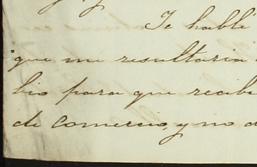 Te hablé
que me resultaria
bio para que recibi
de comercio, y no a